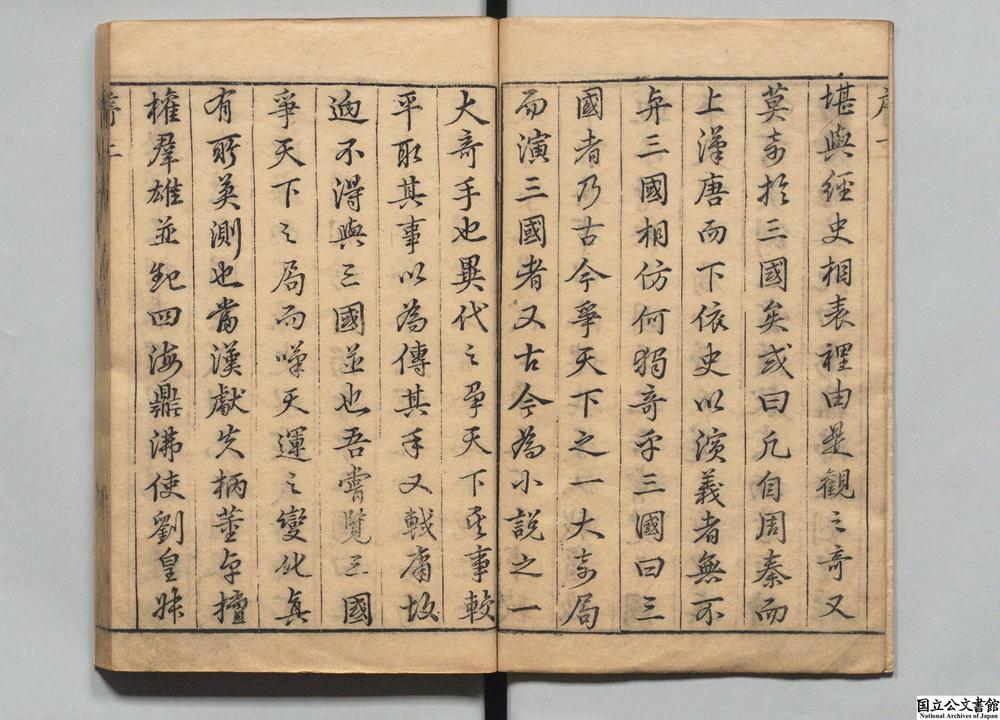 序一
堪與經史相表裡由是觀之奇又
莫奇於三國矣或曰凡自周秦而
上漢唐而下依史以演義者無不
与三國相仿何獨奇乎三國曰三
國者乃古今爭天下之一大奇局
而演三國者又古今為小說之一
大奇手也異代之爭天下其事較
平取其事以為傳其手又較庸故
迥不得與三國並也吾嘗覽三國
爭天下之局而嘆天運之變化真
有所莫測也當漢獻失柄董卓擅
權羣雄並起四海鼎沸使劉皇叔
序二
国立公文書館
National Archives of Japan